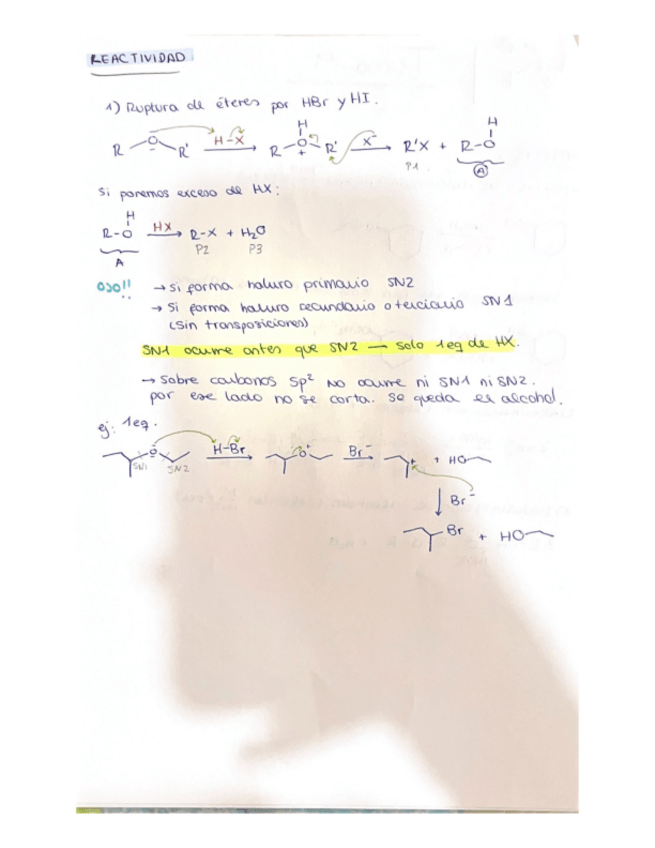 REACTIVIDAD
1) Ruptura de éteres por HBr y HI.
R O R' H-X → R-O-R' H + X⁻ → R'X + R-O H
P1 A
Si ponemos exceso de HX:
R-O H HX → R-X + H₂O
A P2 P3
OJO!! → Si forma haluro primario SN2
→ Si forma haluro secundario o terciario SN1
(Sin transposiciones)
SN1 ocurre antes que SN2 — Solo 1eq de HX.
→ Sobre carbonos Sp² NO ocurre ni SN1 ni SN2.
por ese lado no se corta. Se queda el alcohol.
ej: 1eq.
O SN1 SN2 H-Br → O⁺ Br⁻ → + + HO
↓ Br⁻
Br + HO